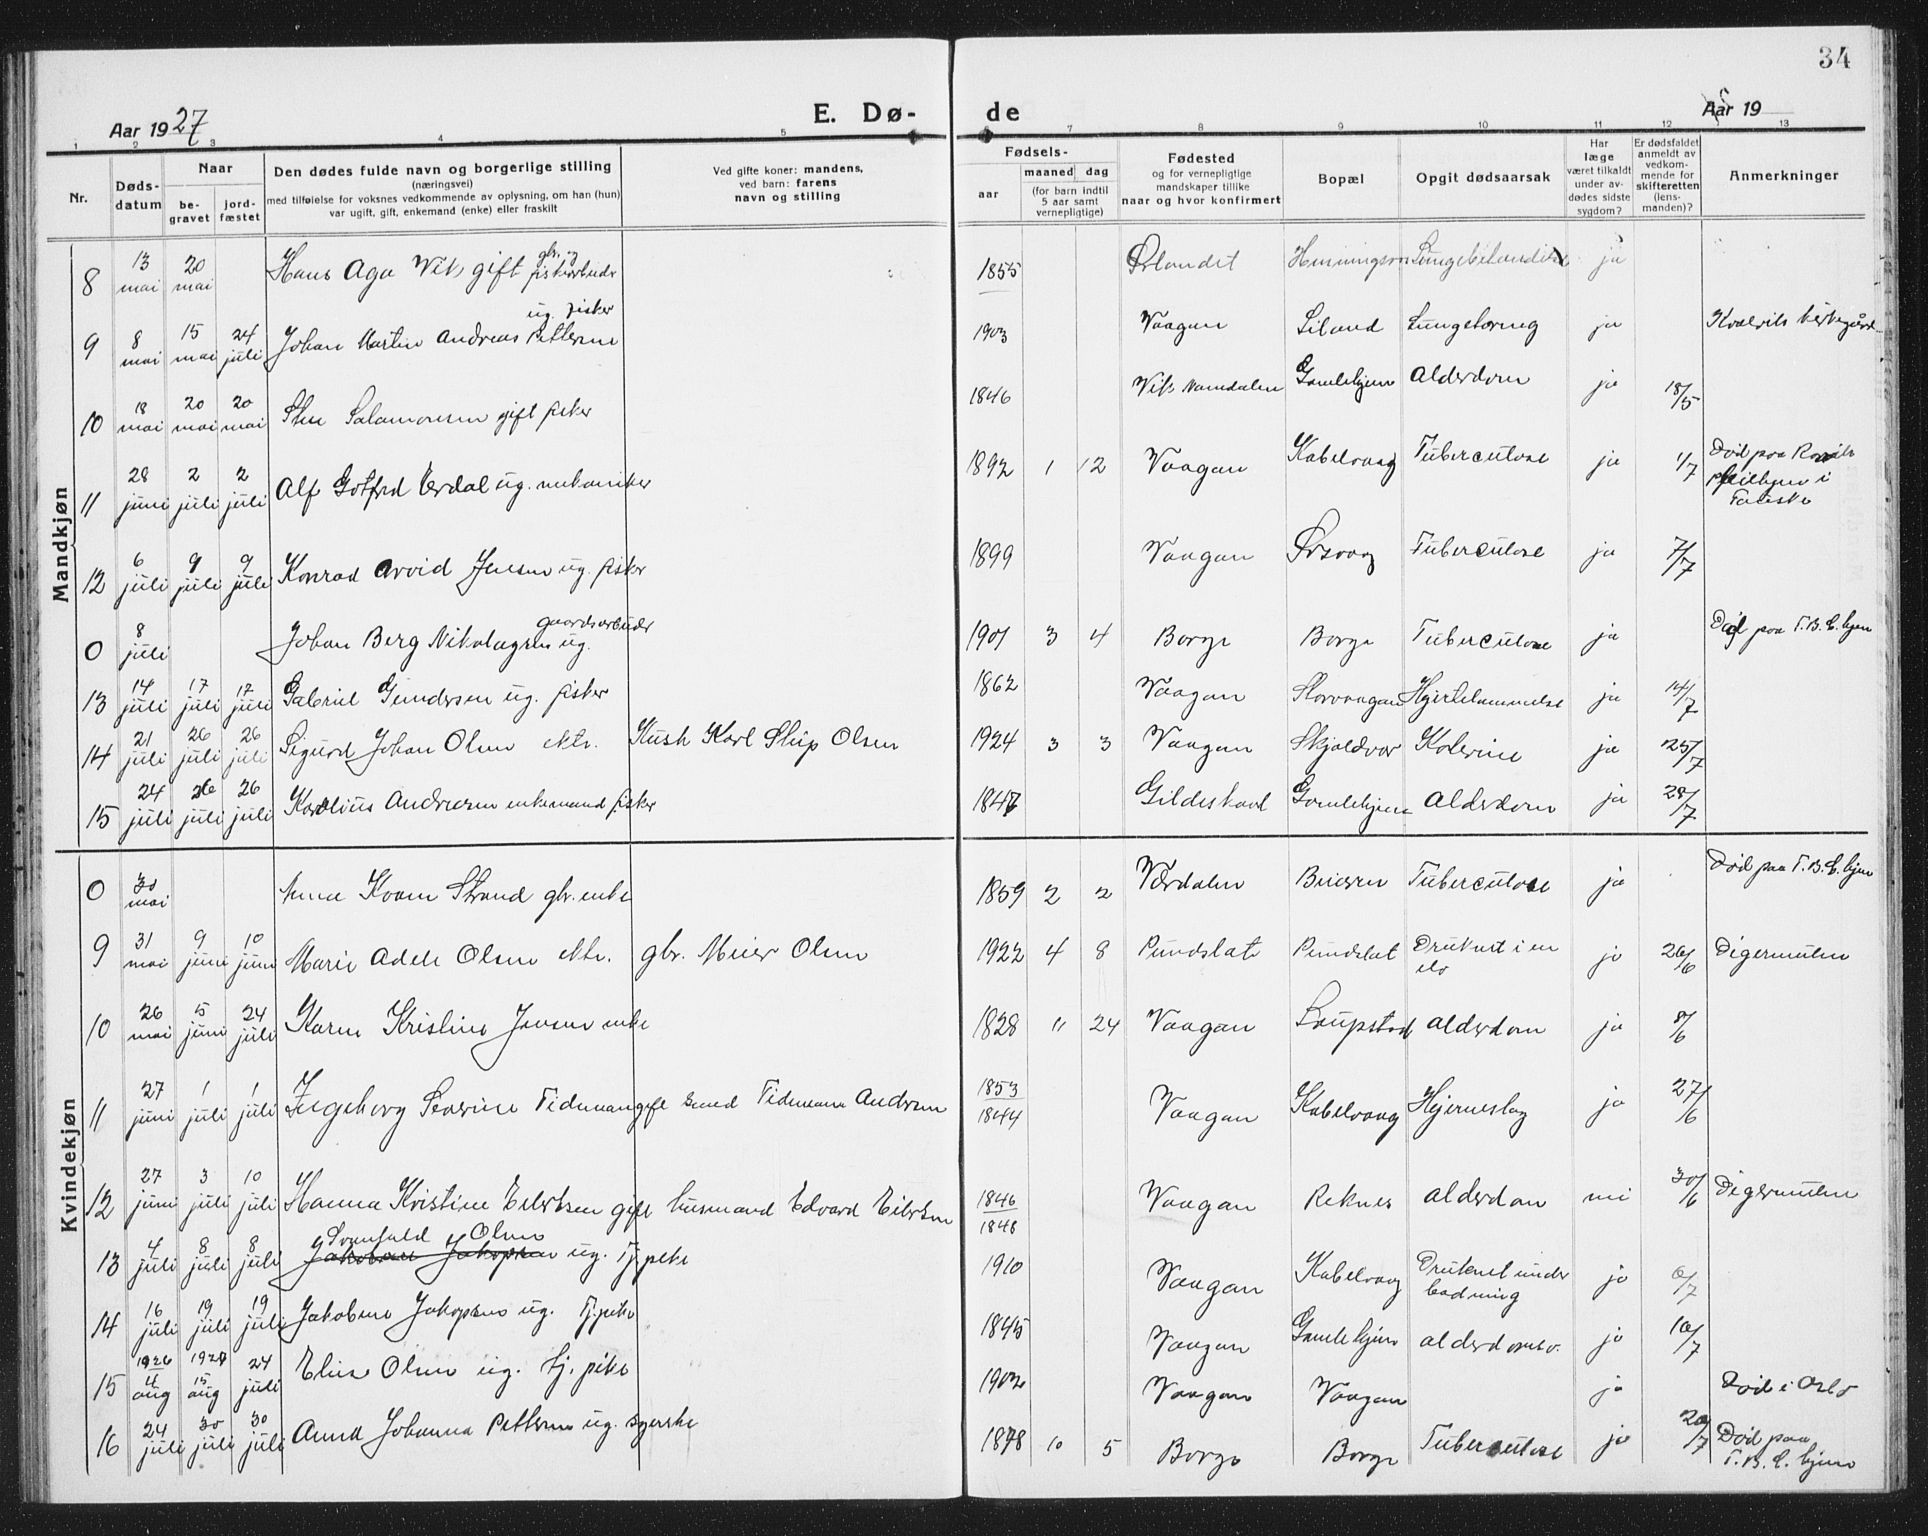 34
Aar 1927
E. Dø-
de
Aar 19
1 2 3 4 5 6 7 8 9 10 11 12 13
Nr.
Døds-
datum
Naar
be-
gravet
jord-
fæstet
Den dødes fulde navn og borgerlige stilling
(næringsvei)
med tilføielse for voksnes vedkommende av oplysning, om han (hun)
var ugift, gift, enkemand (enke) eller fraskilt
Ved gifte koner: mandens,
ved barn: farens
navn og stilling
Fødsels-
aar
maaned dag
(for barn indtil
5 aar samt
vernepligtige)
Fødested
og for vernepligtige
mandskaper tillike
naar og hvor konfirmert
Bopæl
Opgit dødsaarsak
Har
læge
været tilkaldt
under av-
dødes sidste
sygdom?
Er dødsfaldet
anmeldt av
vedkom-
mende for
skifteretten
(lens-
manden)?
Anmerkninger
Mandkjøn
8 13 mai 20 mai Hans Aga Vik gift gbr. og fiskarbeider 1855 Ørlandet ja
9 8 mai 15 mai 24 juli Johan Martin Andreas Pettersen ug. fisker 1903 Vaagan Siland Lungetæring ja Kvalvik kirkegård
10 18 mai 20 mai 20 mai Salamonsen gift fisker 1846 Vik Namdalen Gamlehjem Alderdom ja 18/5
11 28 juni 2 juli 2 juli Alf Gotfred Verdal ug. mekaniker 1892 1 12 Vaagan Kabelvaag Tuberculose ja 1/7 Død paa pleiehjem i Fauske
12 6 juli 9 juli 9 juli Konrad Arvid Jensen ug. fisker 1899 Vaagan Ørsvaag Tuberculose ja 7/7
0 8 juli Johan Berg Nikolaysen ug. gaardsarbeider 1901 3 4 Borge Borge Tuberculose ja Død paa T.B.C. hjem
13 14 juli 17 juli 17 juli Gabriel Gundersen ug. fisker 1862 Vaagan Storvaagan Hjertelammelse ja 14/7
14 21 juli 26 juli 26 juli Sigurd Johan Olsen ekte. Karl Olsen 1924 3 3 Vaagan Skjoldvær Kolerine ja 25/7
15 24 juli 26 juli 26 juli Kornelius Andersen enkemand fisker 1847 Gildeskaal Gamlehjem Alderdom ja 28/7
Kvindekjøn
0 30 mai Anna Kvam Strand gbr. enke 1859 2 2 Værdalen Tuberculose ja Død paa T.B.C. hjem
9 31 mai 9 juni 10 juni Marie Adele Olsen ekte. gbr. Meier Olsen 1922 4 8 Pundslet Pundslet Druknet i en elv ja 26/6 Digermulen
10 26 mai 5 juni 24 juli Karen Kristine Jensen enke 1828 11 24 Vaagan Laupstad Alderdom ja 8/6
11 27 juni 1 juli 1 juli Ingeborg Severine Tideman gift Tidemann Andersen 1853 1844 Vaagan Kabelvaag Hjerneslag ja 27/6
12 27 juni 3 juli 10 juli Hanna Kristine Eilertsen gift husmand Edvard Eilertsen 1846 1848 Vaagan Reknes Alderdom nei 30/6 Digermulen
13 4 juli 8 juli 8 juli Svanhild Olsen Jakobine Jakopsen ug. Tj.pike 1910 Vaagan Kabelvaag Druknet under badning ja 6/7
14 16 juli 19 juli 19 juli Jakobine Jakopsen ug. Tj.pike 1845 Vaagan Gamlehjem alderdomsv. ja 16/7
15 1926 4 aug 1926 15 aug 24 juli Elise Olsen ug. tj. pike 1902 Vaagan Vaagan ja Død i Oslo
16 24 juli 30 juli 30 juli Anna Johanna Pettersen ug. syerske 1878 10 5 Borge Borge Tuberculose ja 29/7 Død paa T.B.C. hjem